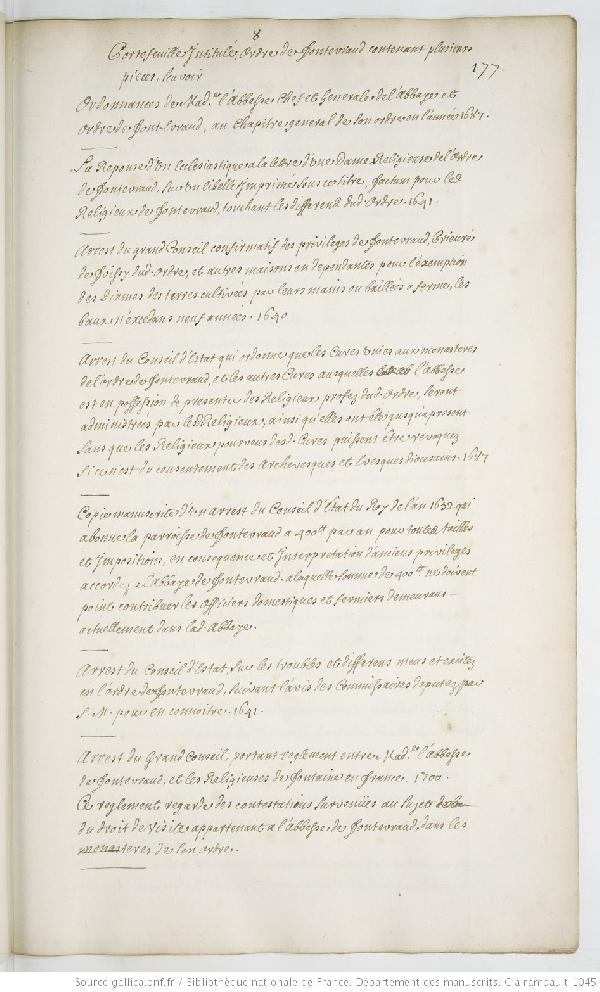 8
Portefeuille Intitulé, Ordre de Fontevraud contenant plusieurs
pieces, scavoir
177.
Ordonnances de Mad.e l'Abbesse Chef et Generale de l'Abbaye et
Ordre de Font-Evraud, au Chapitre general de son ordre en l'année 1687.
La Reponse d'Un Ecclesiastique a la lettre d'Une Dame Religieuse de l'Ordre
de Fontevraud, sur un libelle Imprimé sous ce titre, factum pour les
Religieux de Fontevraud, touchant les differens dud. Ordre. 1641.
Arrest du grand Conseil confirmatif des privileges de Fontevraud, Prieuré
de Poissy dud. ordre, et autres maisons en dependantes pour l'exemption
des Dixmes des terres cultivées par leurs mains ou baillées a ferme, les
baux n'excedans neuf années. 1640
Arrest du Conseil d'Estat qui ordonne que les Cures Unies aux monasteres
de l'ordre de Fontevraud, et les autres Cures ausquelles l'abbesse
est en possession de presenter des Religieux profez dud. Ordre, seront
administrées par lesd. Religieux, ainsi qu'elles ont été jusqu'a present
sans que les Religieux pourveus desd. Cures puissent être revoquez
si ce n'est du consentement des Archevesques et Evesques diocesains. 1687
Copie manuscrite d'Un arrest du Conseil d'Etat du Roy de l'an 1632 qui
abonne la parroisse de Fontevraud a 400tt par an pour toutes tailles
et Impositions, en consequence et Interpretation d'anciens privileges
accordez a l'abbaye de Fontevraud. a laquelle somme de 400tt ne doivent
point contribuer les officiers domestiques et fermiers demeurans
actuellement dans lad. Abbaye.
Arrest du Conseil d'Estat, sur les troubles et differens meus et excitez
en l'ordre de Fontevraud, suivant l'avis des Commissaires deputez par
S. M. pour en connoitre. 1641.
Arrest du Grand Conseil, portant reglement entre Mad.e l'abbesse
de Fontevraud, et les Religieuses de Fontaine en France. 1700.
Ce reglement regarde des contestations survenües au sujet
du droit de Visite appartenant a l'abbesse de Fontevraud, dans les
monasteres de son ordre.
Source gallica.bnf.fr / Bibliothèque nationale de France. Département des manuscrits. Clairambault 1045